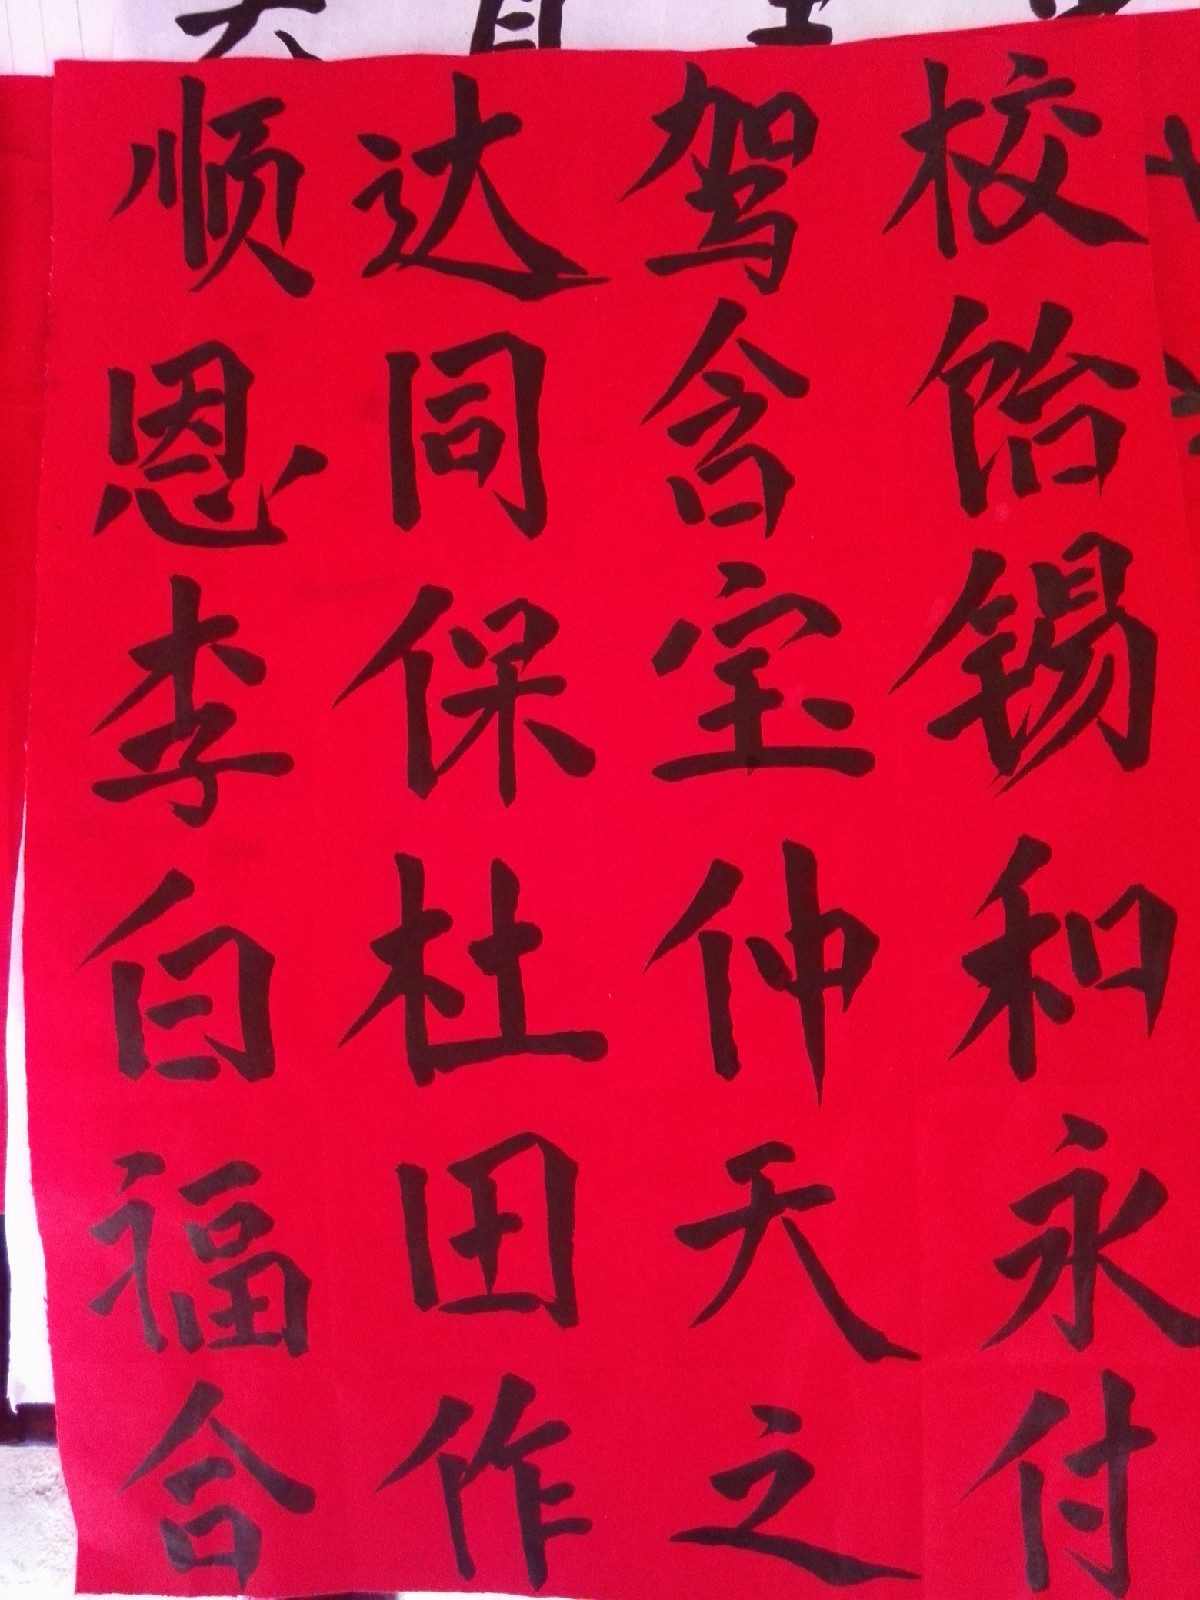 顺达驾校
恩同含饴
李保宝锡
白杜仲和
福田天永
合作之付